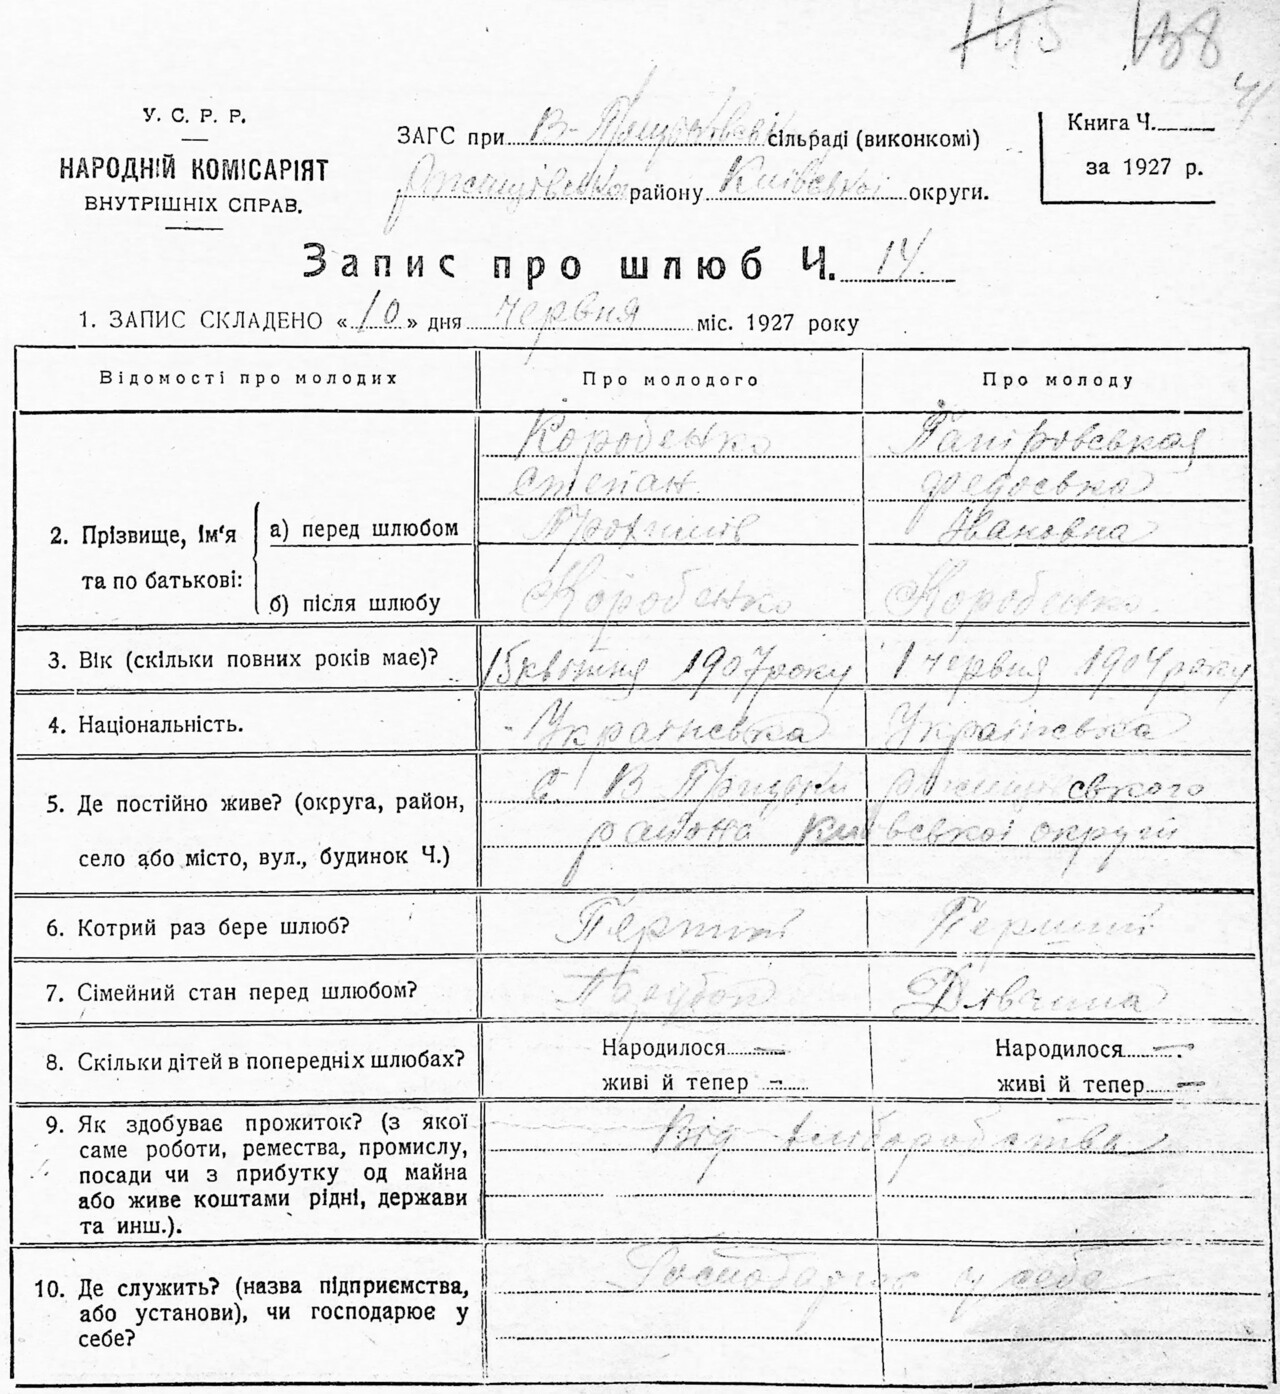 138
41
У. С. Р. Р.
НАРОДНІЙ КОМІСАРІЯТ
ВНУТРІШНІХ СПРАВ.
ЗАГС при В- сільраді (виконкомі)
району Київської округи.
Книга Ч.
за 1927 р.
Запис про шлюб Ч. 14.
1. ЗАПИС СКЛАДЕНО « 10 » дня червня міс. 1927 року
Відомості про молодих
Про молодого
Про молоду
2. Прізвище, ім'я
та по батькові:
а) перед шлюбом
б) після шлюбу
Коробенко
Степан
Трохимів
Коробенко
Федосівка
Івановна
Коробенко.
3. Вік (скільки повних років має)?
15 квітня 1907 року
1 червня 1904 року
4. Національність.
Українська
Українська
5. Де постійно живе? (округа, район,
село або місто, вул., будинок Ч.)
с. В ського
района Київської округи
6. Котрий раз бере шлюб?
Перший
Перший
7. Сімейний стан перед шлюбом?
Парубок
Дівчина
8. Скільки дітей в попередніх шлюбах?
Народилося —
живі й тепер —
Народилося —.
живі й тепер —
9. Як здобуває прожиток? (з якої
саме роботи, ремества, промислу,
посади чи з прибутку од майна
або живе коштами рідні, держави
та инш.).
Від хліборобства
10. Де служить? (назва підприємства,
або установи), чи господарює у
себе?
у себе